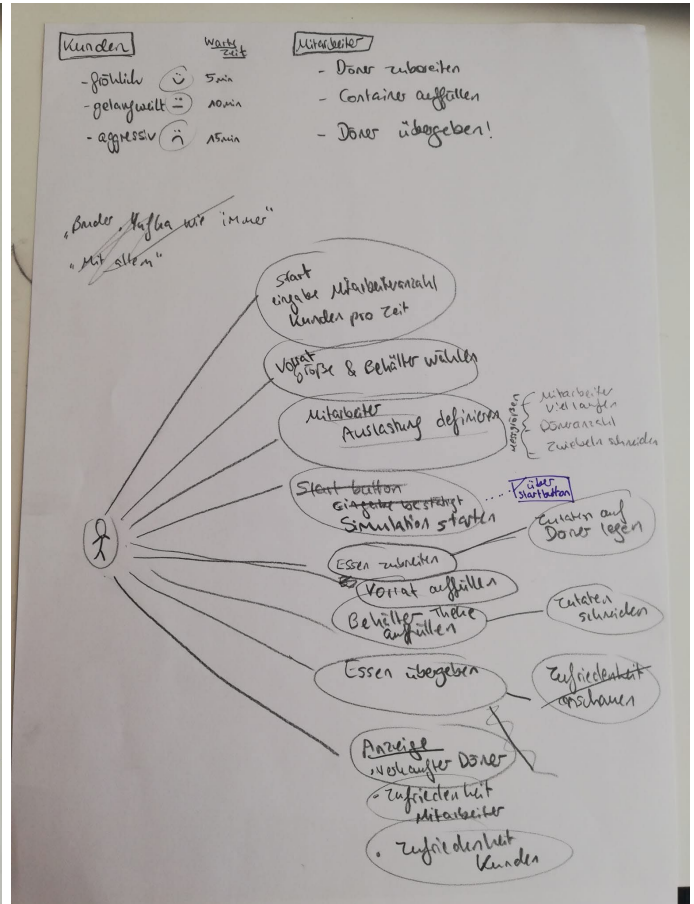 Kunden
Warte
Zeit
- fröhlich 5 min
- gelangweilt 10 min
- aggressiv 15 min
Mitarbeiter
- Döner zubereiten
- Container auffüllen
- Döner übergeben!
wie immer"
"Mit allem"
Start
eingabe Mitarbeiteranzahl
Kunden pro Zeit
Vorrat
größe & Behälter wählen
Mitarbeiter
Auslastung definieren
Mitarbeiter
viel laufen
Döneranzahl
Zwiebeln schneiden
Start button
Eingabe bestätigt
Simulation starten
über
startbutton
Essen zubereiten
Zutaten auf
Döner legen
Vorrat auffüllen
Behälter Theke
auffüllen
Zutaten
schneiden
Essen übergeben
Zufriedenheit
anschauen
Anzeige
• verkaufter Döner
• Zufriedenheit
Mitarbeiter
• Zufriedenheit
Kunden